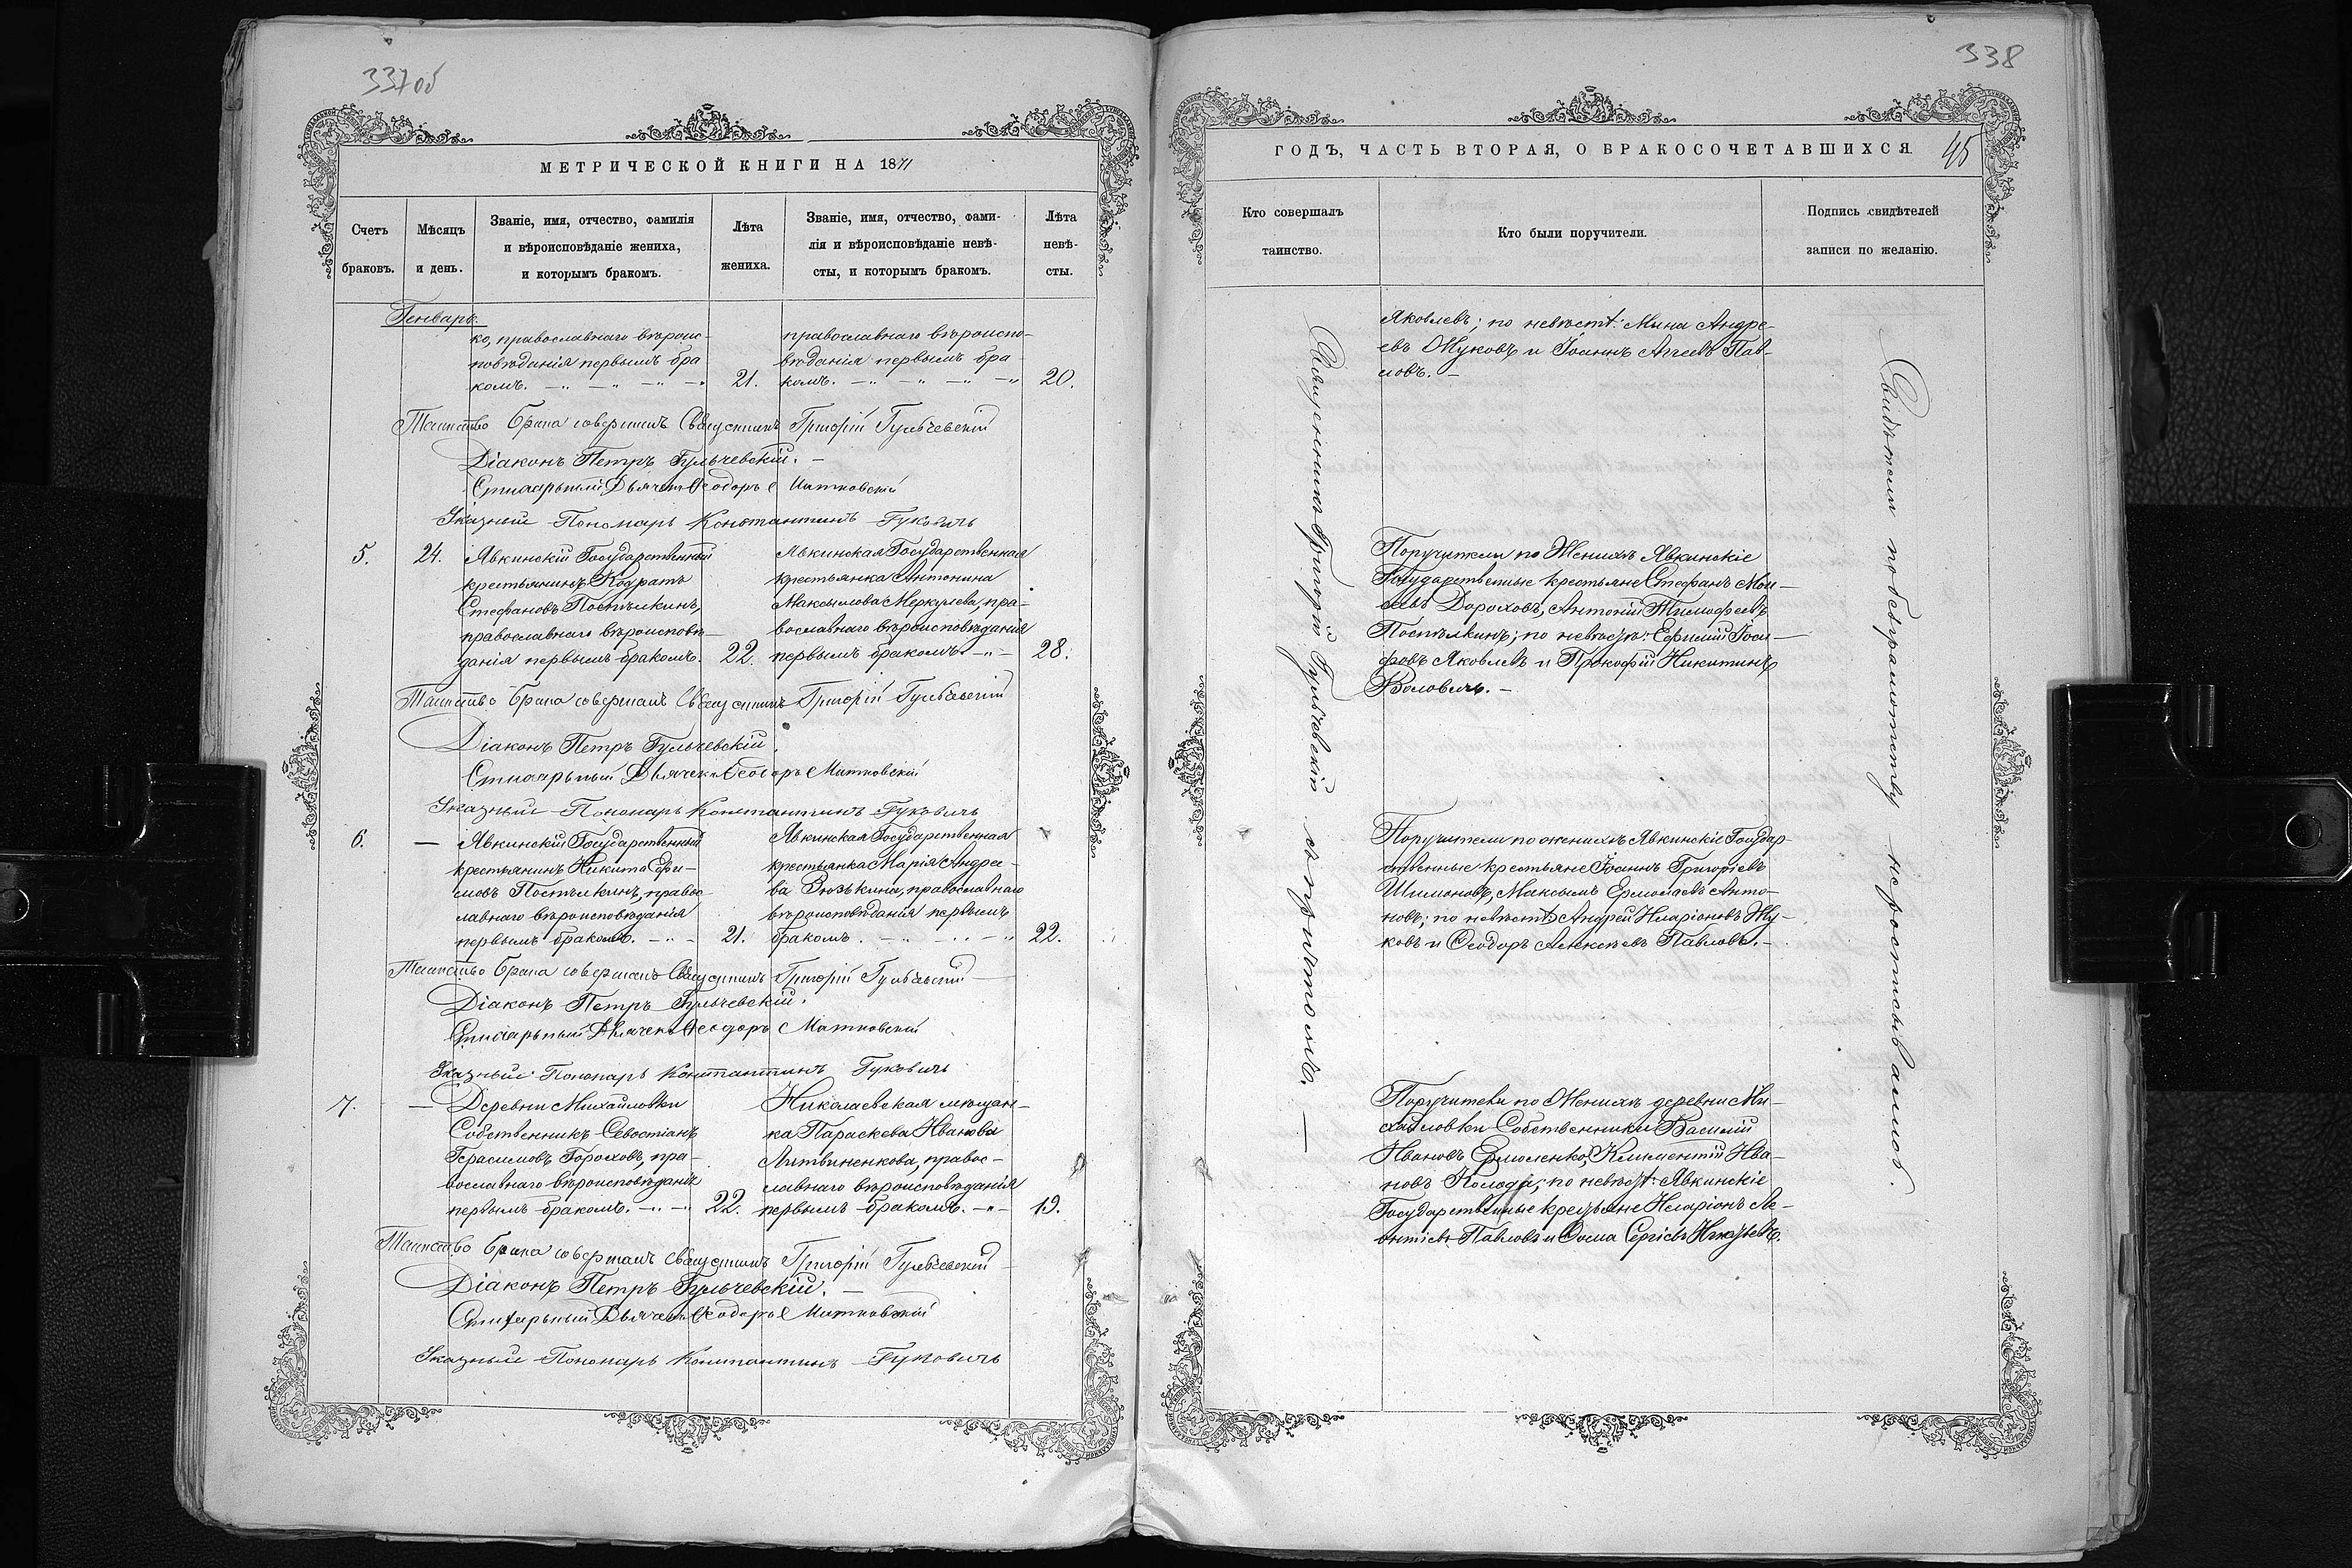 337об
МЕТРИЧЕСКОЙ КНИГИ НА 1871
Счетъ браковъ.
Мѣсяцъ и день.
Званіе, имя, отчество, фамилія
и вѣроисповѣданіе жениха,
и которымъ бракомъ.
Лѣта жениха.
Званіе, имя, отчество, фами-
лія и вѣроисповѣданіе невѣ-
сты, и которымъ бракомъ.
Лѣта невѣ-
сты.
Генварь.
ко, православнаго вѣроис-
повѣданія первымъ бра
комъ. 21.
православнаго вѣроиспо-
вѣданія первымъ бра
комъ. 20.
Таинство брака совершилъ Священникъ Григорій Гульчевскій
Діаконъ Петръ Гульчевскій.
Стихарный Дьячекъ Ѳеодоръ Митковскій
Указный Пономарь Константинъ Гуковичъ
5. 24. Явкинскій Государственный
крестьянинъ Кодратъ
Стефановъ Постѣлкинъ,
православнаго вѣроисповѣ-
данія первымъ бракомъ. 22.
Явкинская Государственная
крестьянка Антонина
Максимова Меркулева, пра-
вославнаго вѣроисповѣданія
первымъ бракомъ. 28.
Таинство брака совершилъ Священникъ Григорій Гульчевскій
Діаконъ Петръ Гульчевскій.
Стихарный Дьячекъ Ѳеодоръ Митковскій
Указный Пономарь Константинъ Гуковичъ
6. — Явкинскій Государственный
крестьянинъ Никита Ефи-
мовъ Постѣлкинъ, правос
славнаго вѣроисповѣданія
первымъ бракомъ. 21.
Явкинская Государственная
крестьянка Марія Андрее-
ва Зюзькина, православнаго
вѣроисповѣданія первымъ
бракомъ. 22.
Таинство брака совершилъ Священникъ Григорій Гульчевскій
Діаконъ Петръ Гульчевскій.
Стихарный Дьячекъ Ѳеодоръ Митковскій
Указный Пономарь Константинъ Гуковичъ
7. — Деревни Михайловки
Собственникъ Севостіанъ
Герасимовъ Гороховъ, пра-
вославнаго вѣроисповѣданія
первымъ бракомъ. 22.
Николаевская мѣщан-
ка Параскева Иванова
Литвиненкова, правос-
славнаго вѣроисповѣданія
первымъ бракомъ. 19.
Таинство брака совершилъ Священникъ Григорій Гульчевскій
Діаконъ Петръ Гульчевскій.
Стихарный Дьячекъ Ѳеодоръ Митковскій
Указный Пономарь Константинъ Гуковичъ
338
ГОДЪ, ЧАСТЬ ВТОРАЯ, О БРАКОСОЧЕТАВШИХСЯ.
45
Кто совершалъ
таинство.
Кто были поручители.
Подпись свидѣтелей
записи по желанію.
Священникъ Григорій Гульчевскій съ причтомъ.
Яковлевъ; по невѣстѣ: Мина Андре-
евъ Жуковъ и Іоаннъ Агеевъ Пав-
ловъ.
Поручители по Женихѣ Явкинскіе
Государственные крестьяне Стефанъ Мои-
сеевъ Дороховъ, Антоній Тимофеевъ
Постѣлкинъ; по невѣстѣ: Ефимій Іоси-
фовъ Яковлевъ и Прокофій Никитинъ
Воловичъ.
Поручители по женихѣ Явкинскіе Государ
ственные крестьяне Іоаннъ Григорьевъ
Шимоновъ, Максимъ Ермолаевъ Анто-
новъ; по невѣстѣ Андрей Иларіоновъ Жу-
ковъ и Ѳеодоръ Алексѣевъ Павловъ.
Поручители по Женихѣ деревни Ми-
хайловки Собственники Василій
Ивановъ Ермоленко, Климентій Ива-
новъ Колода; по невѣстѣ: Явкинскіе
Государственные крестьяне Иларіонъ Ле-
онтіевъ Павловъ и Ѳома Сергіевъ
Свидѣтели по безграмотству не росписывались.